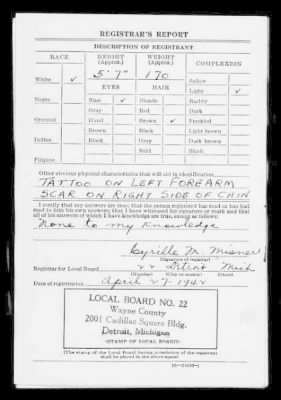 REGISTRAR'S REPORT
DESCRIPTION OF REGISTRANT
RACE HEIGHT (Approx.) WEIGHT (Approx.) COMPLEXION
5' 7" 170 Sallow
White ✓ EYES HAIR Light ✓
Negro Blue ✓ Blonde Ruddy
Gray Red Dark
Oriental Hazel Brown ✓ Freckled
Brown Black Light brown
Indian Black Gray Dark brown
Bald Black
Filipino
Other obvious physical characteristics that will aid in identification
TATTOO ON LEFT FOREARM
SCAR ON RIGHT SIDE OF CHIN
I certify that my answers are true; that the person registered has read or has had
read to him his own answers; that I have witnessed his signature or mark and that
all of his answers of which I have knowledge are true, except as follows:
None to my knowledge
Cyrille M. Misner
(Signature of registrar)
Registrar for Local Board 22 Detroit Mich
(Number) (City or county) (State)
Date of registration April 27-1942
LOCAL BOARD NO. 22
Wayne County
2001 Cadillac Square Bldg.
Detroit, Michigan
(STAMP OF LOCAL BOARD)
(The stamp of the Local Board having jurisdiction of the registrant
shall be placed in the above space)